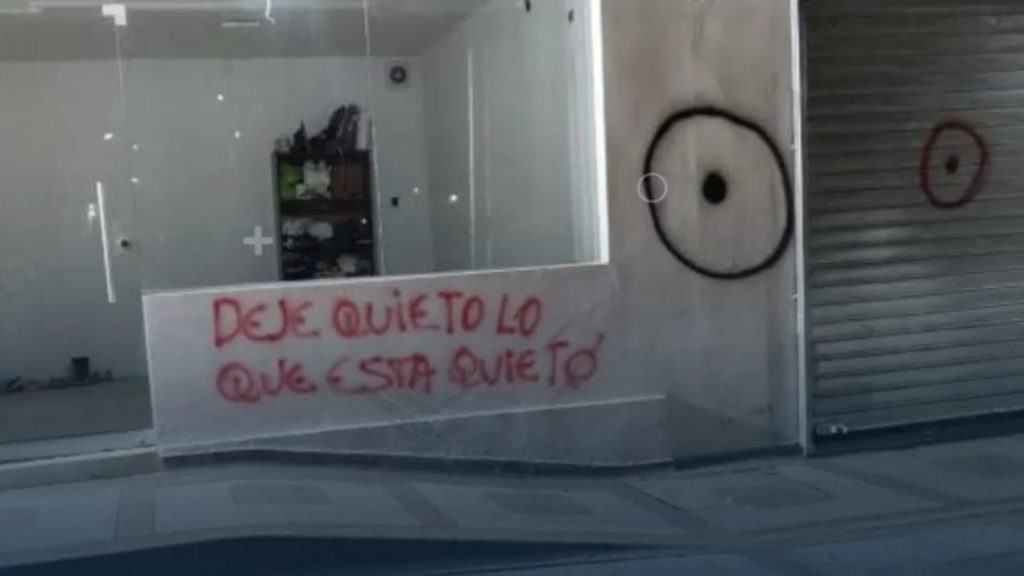 DEJE QUIETO LO
QUE ESTA QUIETO